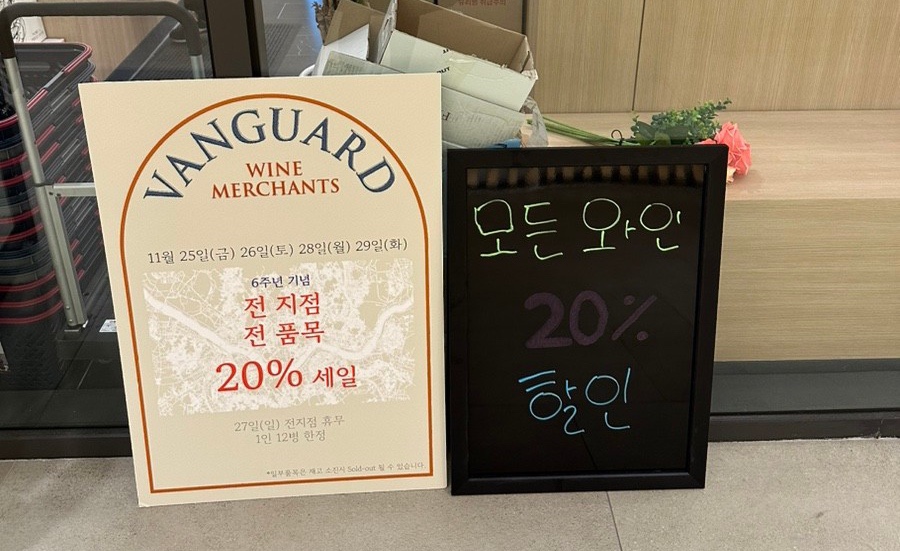 VANGUARD
WINE
MERCHANTS
11월 25일(금) 26일(토) 28일(월) 29일(화)
6주년 기념
전 지점
전 품목
20% 세일
27일(일) 전지점 휴무
1인 12병 한정
*일부품목은 재고 소진시 Sold-out 될 수 있습니다.
모든 와인
20%
할인